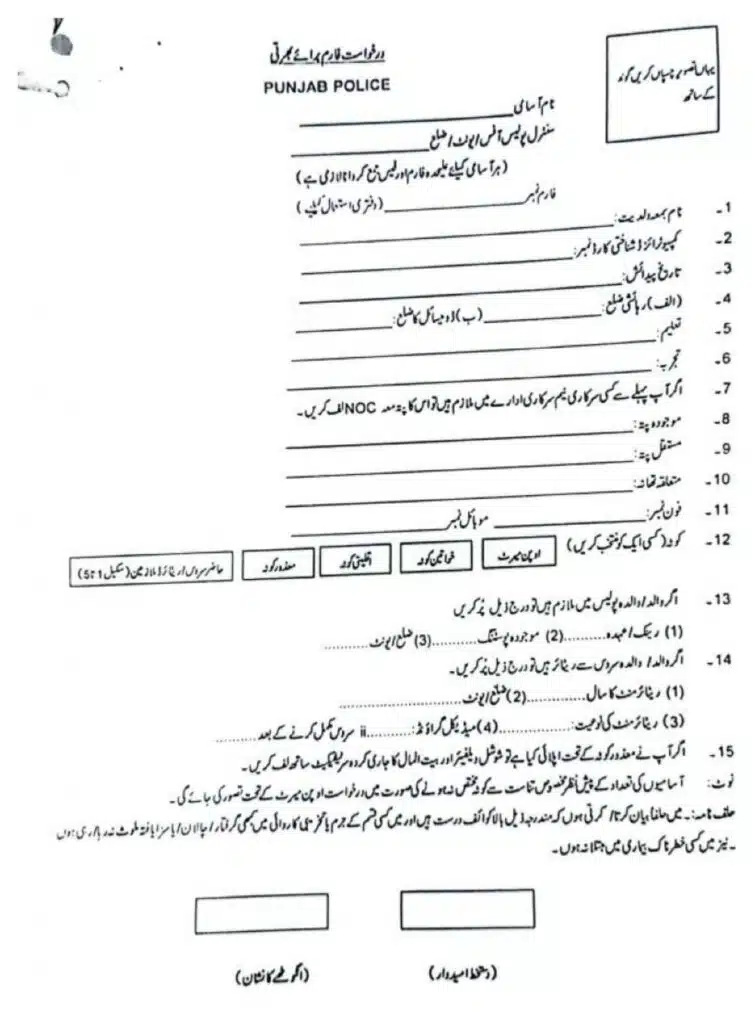 درخواست فارم برائے بھرتی
PUNJAB POLICE
یہاں تصویر چسپاں کریں گوند
کے ساتھ
نام آسامی ____________
سنٹرل پولیس آفس/یونٹ/ضلع ____________
(ہر آسامی کیلئے علیحدہ فارم اور فیس جمع کروانا لازمی ہے)
فارم نمبر ____________ (دفتری استعمال کیلئے)
1۔ نام بمعہ ولدیت: ____________
2۔ کمپیوٹرائزڈ شناختی کارڈ نمبر: ____________
3۔ تاریخ پیدائش: ____________
4۔ (الف) رہائشی ضلع: ____________ (ب) ڈومیسائل کا ضلع: ____________
5۔ تعلیم: ____________
6۔ تجربہ: ____________
7۔ اگر آپ پہلے سے کسی سرکاری نیم سرکاری ادارے میں ملازم ہیں تو اس کا پتہ معہ NOC لف کریں۔
8۔ موجودہ پتہ: ____________
9۔ مستقل پتہ: ____________
10۔ متعلقہ تھانہ: ____________
11۔ فون نمبر: ____________ موبائل نمبر ____________
12۔ کوٹہ (کسی ایک کو منتخب کریں) اوپن میرٹ خواتین کوٹہ اقلیتی کوٹہ معذور کوٹہ حاضر سروس/ریٹائرڈ ملازمین (سکیل 1 تا 5)
13۔ اگر والد/والدہ پولیس میں ملازم ہیں تو درج ذیل پُر کریں
(1) رینک/عہدہ.......... (2) موجودہ پوسٹنگ.......... (3) ضلع/یونٹ..........
14۔ اگر والد/والدہ سروس سے ریٹائر ہیں تو درج ذیل پُر کریں۔
(1) ریٹائرمنٹ کا سال.......... (2) ضلع/یونٹ....................
(3) ریٹائرمنٹ کی نوعیت:.......... (4) میڈیکل گراؤنڈ:.......... ii سروس مکمل کرنے کے بعد..........
15۔ اگر آپ نے معذور کوٹہ کے تحت اپلائی کیا ہے تو سوشل ویلفیئر اور بیت المال کا جاری کردہ سرٹیفکیٹ ساتھ لف کریں۔
نوٹ: آسامیوں کی تعداد کے پیش نظر مخصوص تناسب سے کوٹہ مختص نہ ہونے کی صورت میں درخواست اوپن میرٹ کے تحت تصور کی جائے گی۔
حلف نامہ:۔ میں حلفاً بیان کرتا/کرتی ہوں کہ مندرجہ ذیل بالا کوائف درست ہیں اور میں کسی قسم کے جرم یا تخریبی کاروائی میں کبھی گرفتار/چالان/یا سزا یافتہ ملوث نہ رہا/رہی ہوں
۔ نیز میں کسی خطرناک بیماری میں مبتلا نہ ہوں۔
(دستخط امیدوار) (انگوٹھے کا نشان)